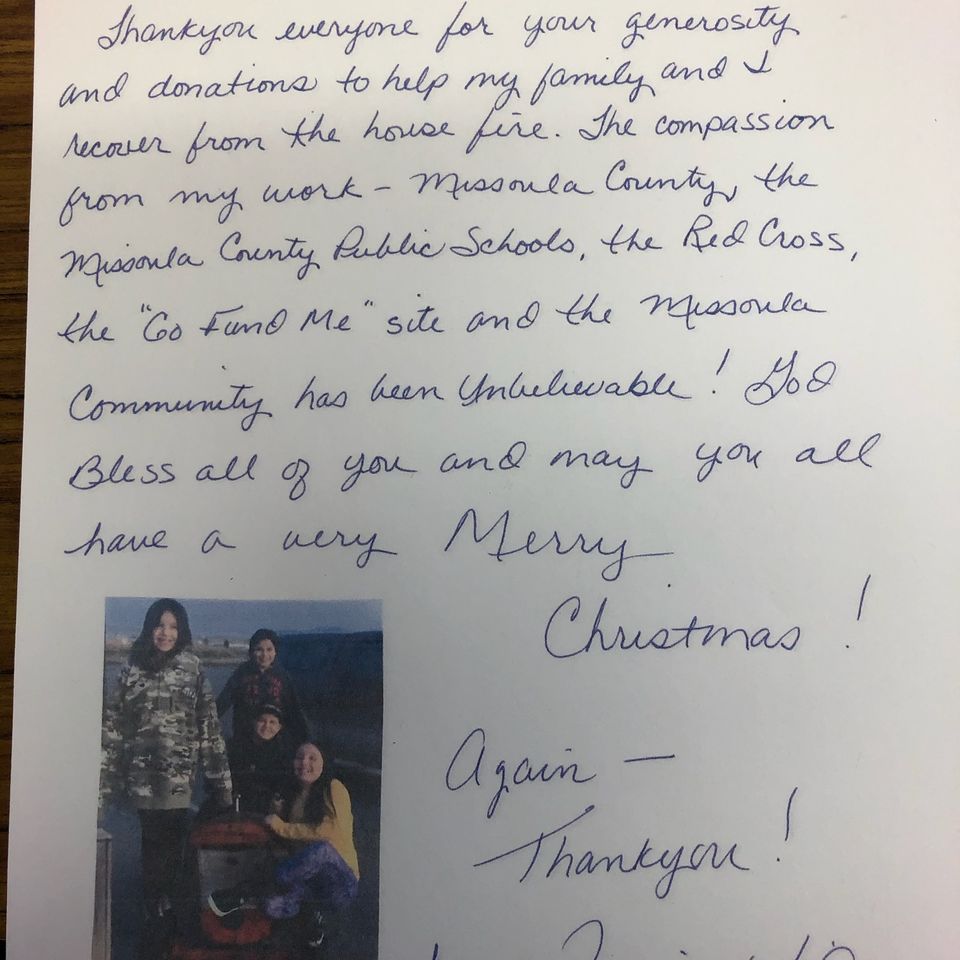 Thankyou everyone for your generosity
and donations to help my family and I
recover from the house fire. The compassion
from my work - Missoula County, the
Missoula County Public Schools, the Red Cross,
the "Go Fund Me" site and the Missoula
Community has been Unbelievable! God
Bless all of you and may you all
have a very Merry
Christmas!
Again —
Thankyou!